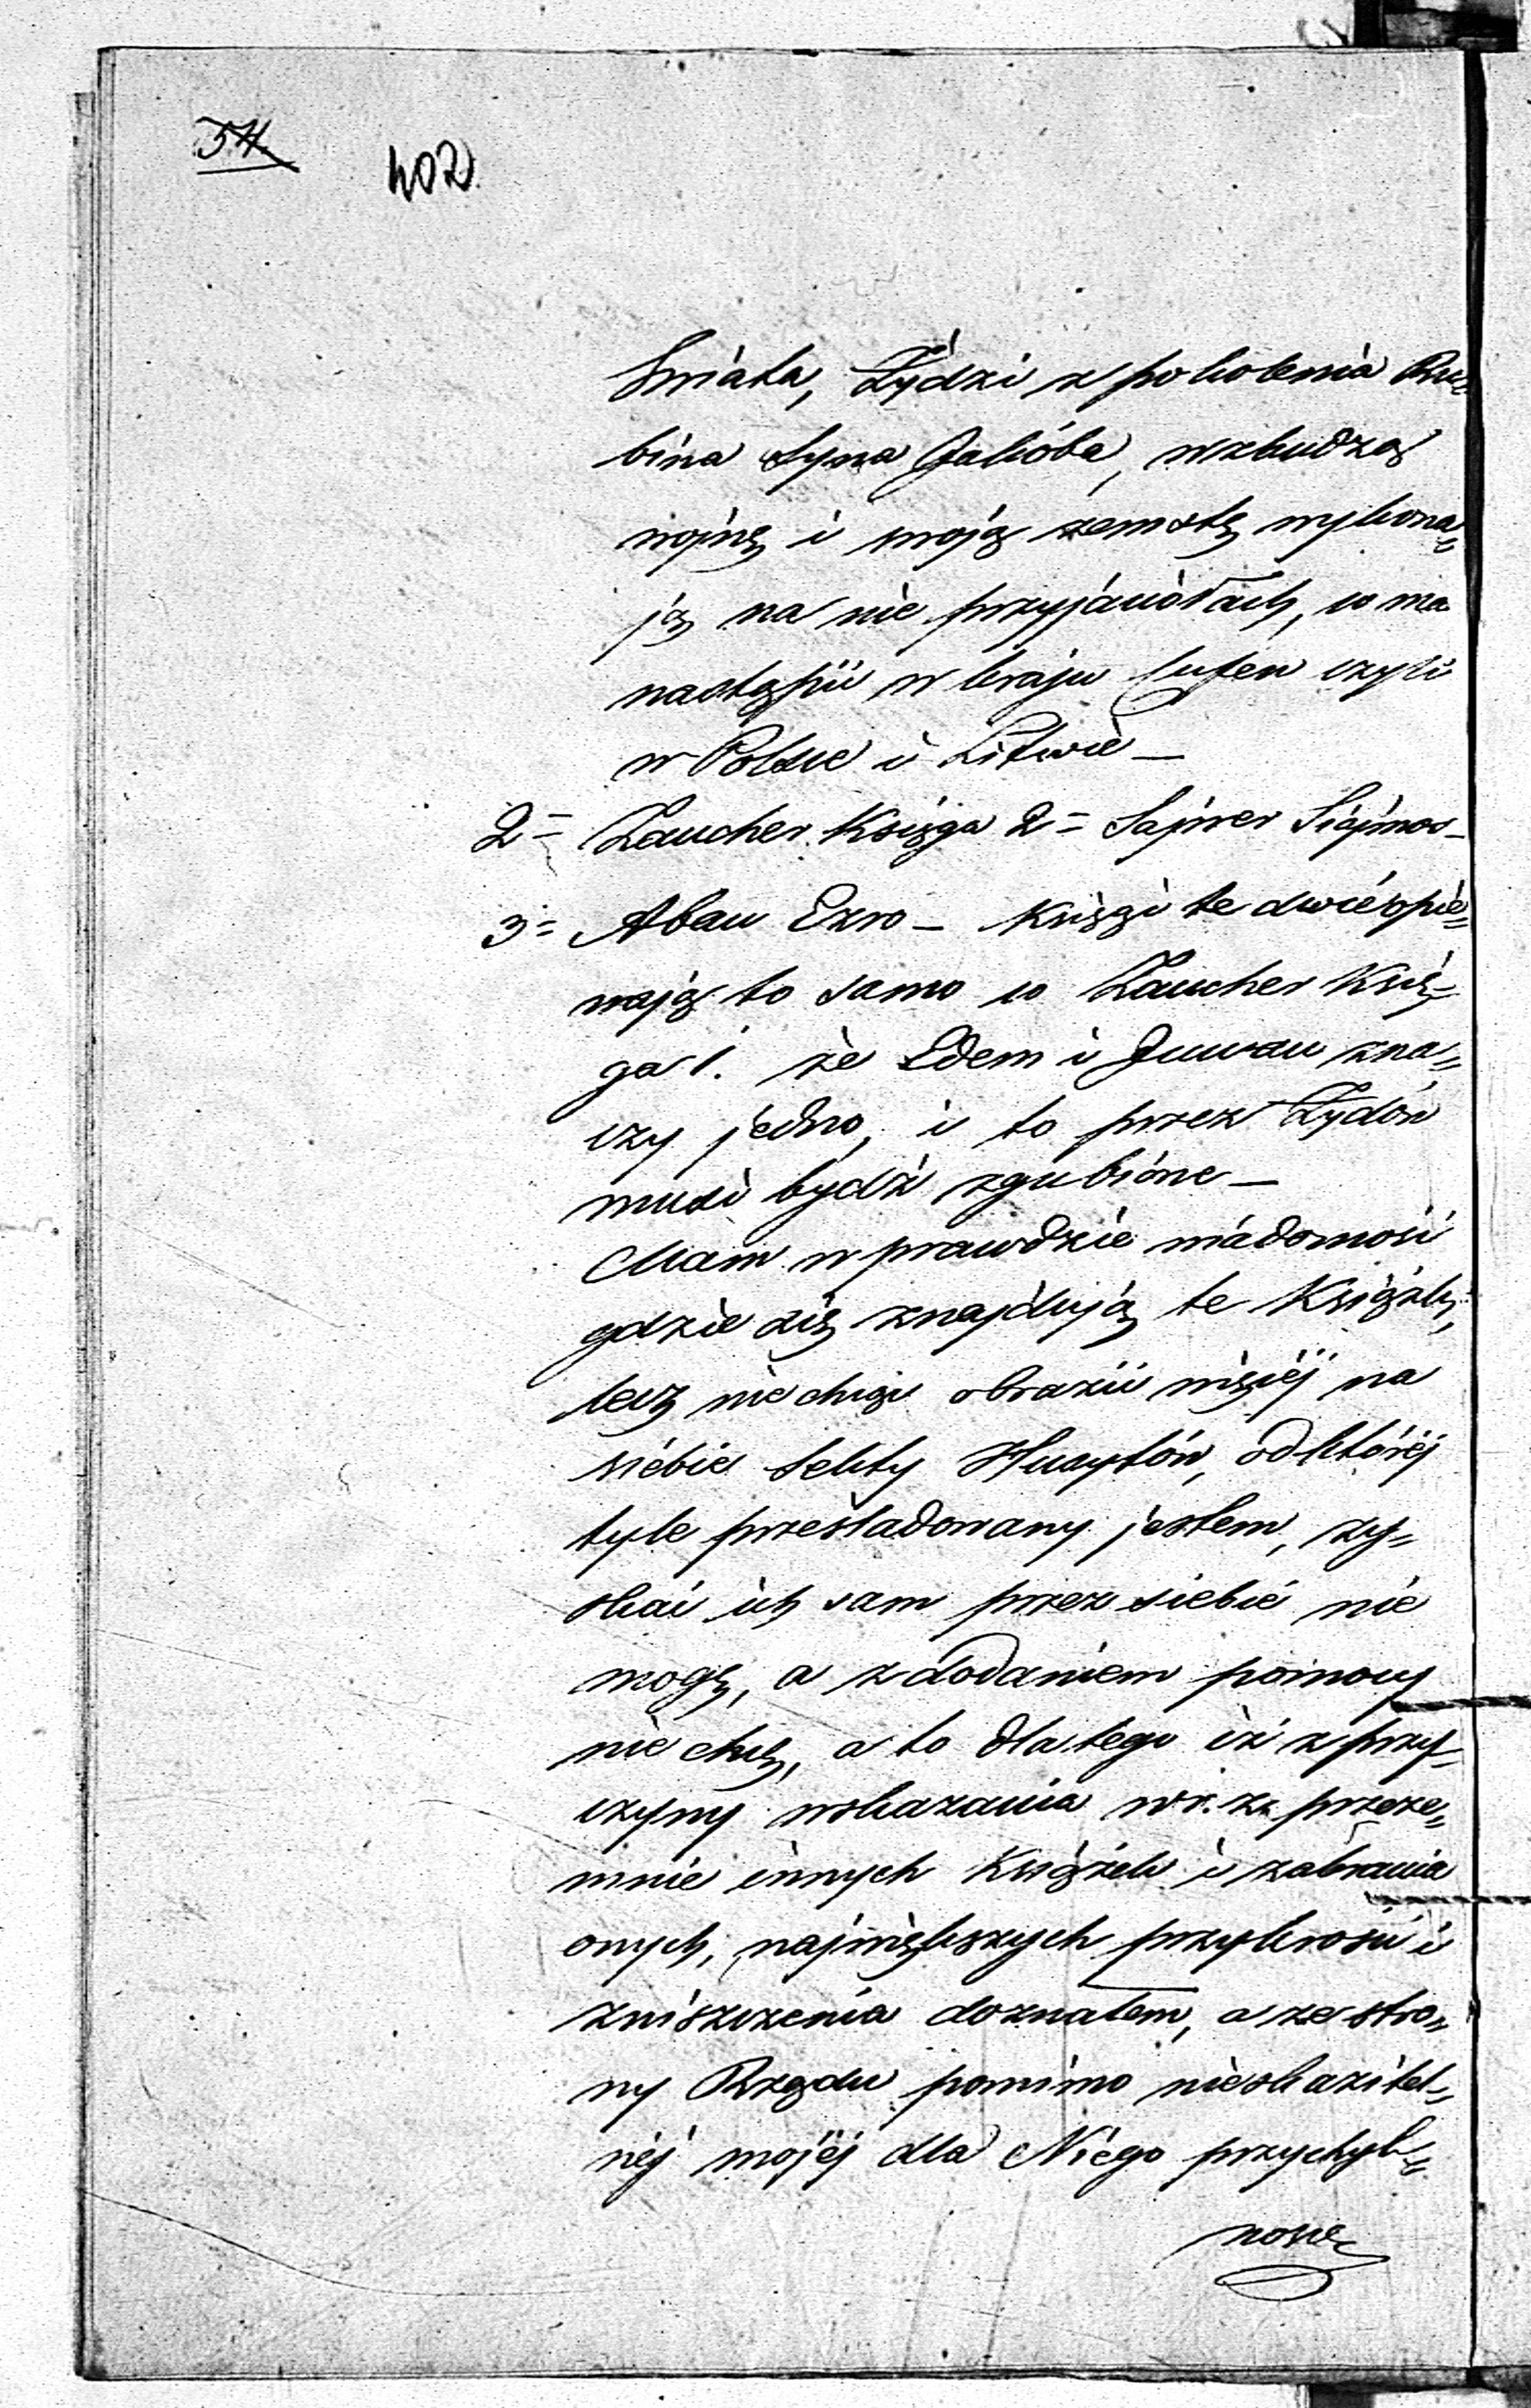 54
402
Swiata, Żydzi z pokolenia Ru„
bina Syna Jakóba, wzbudzą
wojnę i swoją zemstę wykona„
ją na nie przyjaciołach, co ma
nastąpić w kraju lufen czyli
w Polsce i Litwie –
2= Zaucher Księga 2= Sajwer Siajmos –
3= Aben Ezro – Księgi te dwie opie„
wają to samo co Zaucher Księ„
ga 1. że Edem i Juwan zna„
czy jedno, i to przez Żydów
musi bydź zgubione –
Mam w prawdzie wiadomość
gdzie się znajdują te Książki,
lecz nie chcąc obrazić więcéj na
siebie sekty Husytów, od któréj
tyle prześladowany jestem, zy„
skać ich sam przez siebie nie
mogę, a z dodaniem pomocy
nie chcę, a to dla tego iż z przy„
czyny wskazania w r. z. przeze„
mnie innych Książek i zabrania
onych, największych przykrości i
zniszczenia doznałem, a ze stro„
ny Rządu pomimo nieskazitel„
néj mojéj dla Niego przychyl„
ności